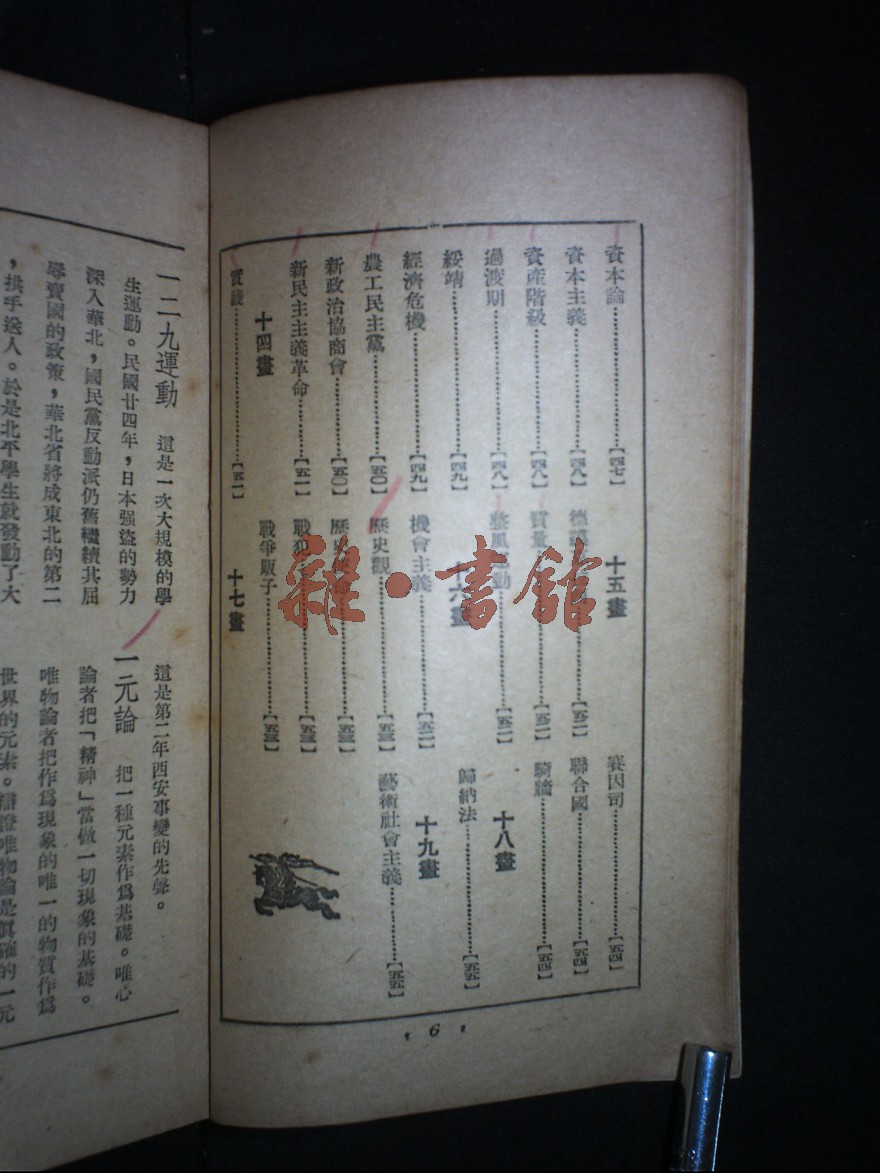 資本論【四七】
資本主義【四八】
資產階級【四八】
過渡期【四八】
綏靖【四九】
經濟危機【四九】
農工民主黨【五〇】
新政治協商會【五〇】
新民主主義革命【五一】
十四畫
實踐【五一】
十五畫
德【五二】
質量【五二】
整風運動【五二】
十六畫
機會主義【五二】
歷史觀【五三】
歷史【五三】
戰犯【五三】
戰爭販子【五三】
十七畫
賽因司【五四】
聯合國【五四】
騎牆【五四】
十八畫
歸納法【五五】
十九畫
藝術社會主義【五五】
6
一二九運動 這是一次大規模的學
生運動。民國廿四年，日本强盜的勢力
深入華北，國民黨反動派仍舊繼續其屈
辱賣國的政策，華北省將成東北的第二
，拱手送人。於是北平學生就發動了大
這是第二年西安事變的先聲。
一元論 把一種元素作爲基礎。唯心
論者把「精神」當做一切現象的基礎。
唯物論者把作爲現象的唯一的物質作爲
世界的元素。辯證唯物論是眞確的一元
雜·書館